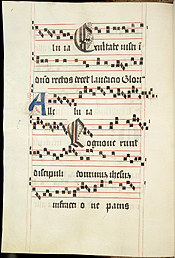 lu ia Exultate iusti i
dño rectos decet laudacio Glori
Alle lu ia
Cognoue runt
discipuli dominum ihesus
in fracci o ne panis